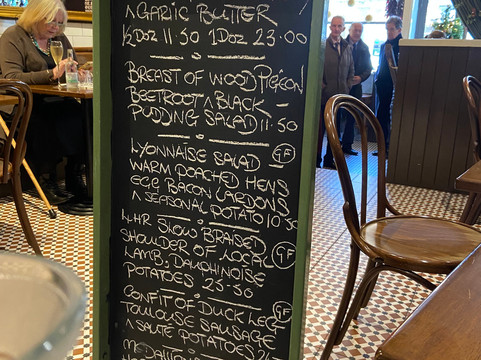 ^ GARLIC BUTTER
½ DOZ 11.50 1 DOZ 23.00
BREAST OF WOOD PIGEON
BEETROOT ^ BLACK
PUDDING SALAD 11.50
LYONNAISE SALAD GF
WARM POACHED HENS
EGG BACON LARDONS
^ SEASONAL POTATO 10.50
4HR SLOW BRAISED
SHOULDER OF LOCAL GF
LAMB, DAUPHINOISE
POTATOES 25-50
CONFIT OF DUCK LEG GF
TOULOUSE SAUSAGE
^ SAUTE POTATOES